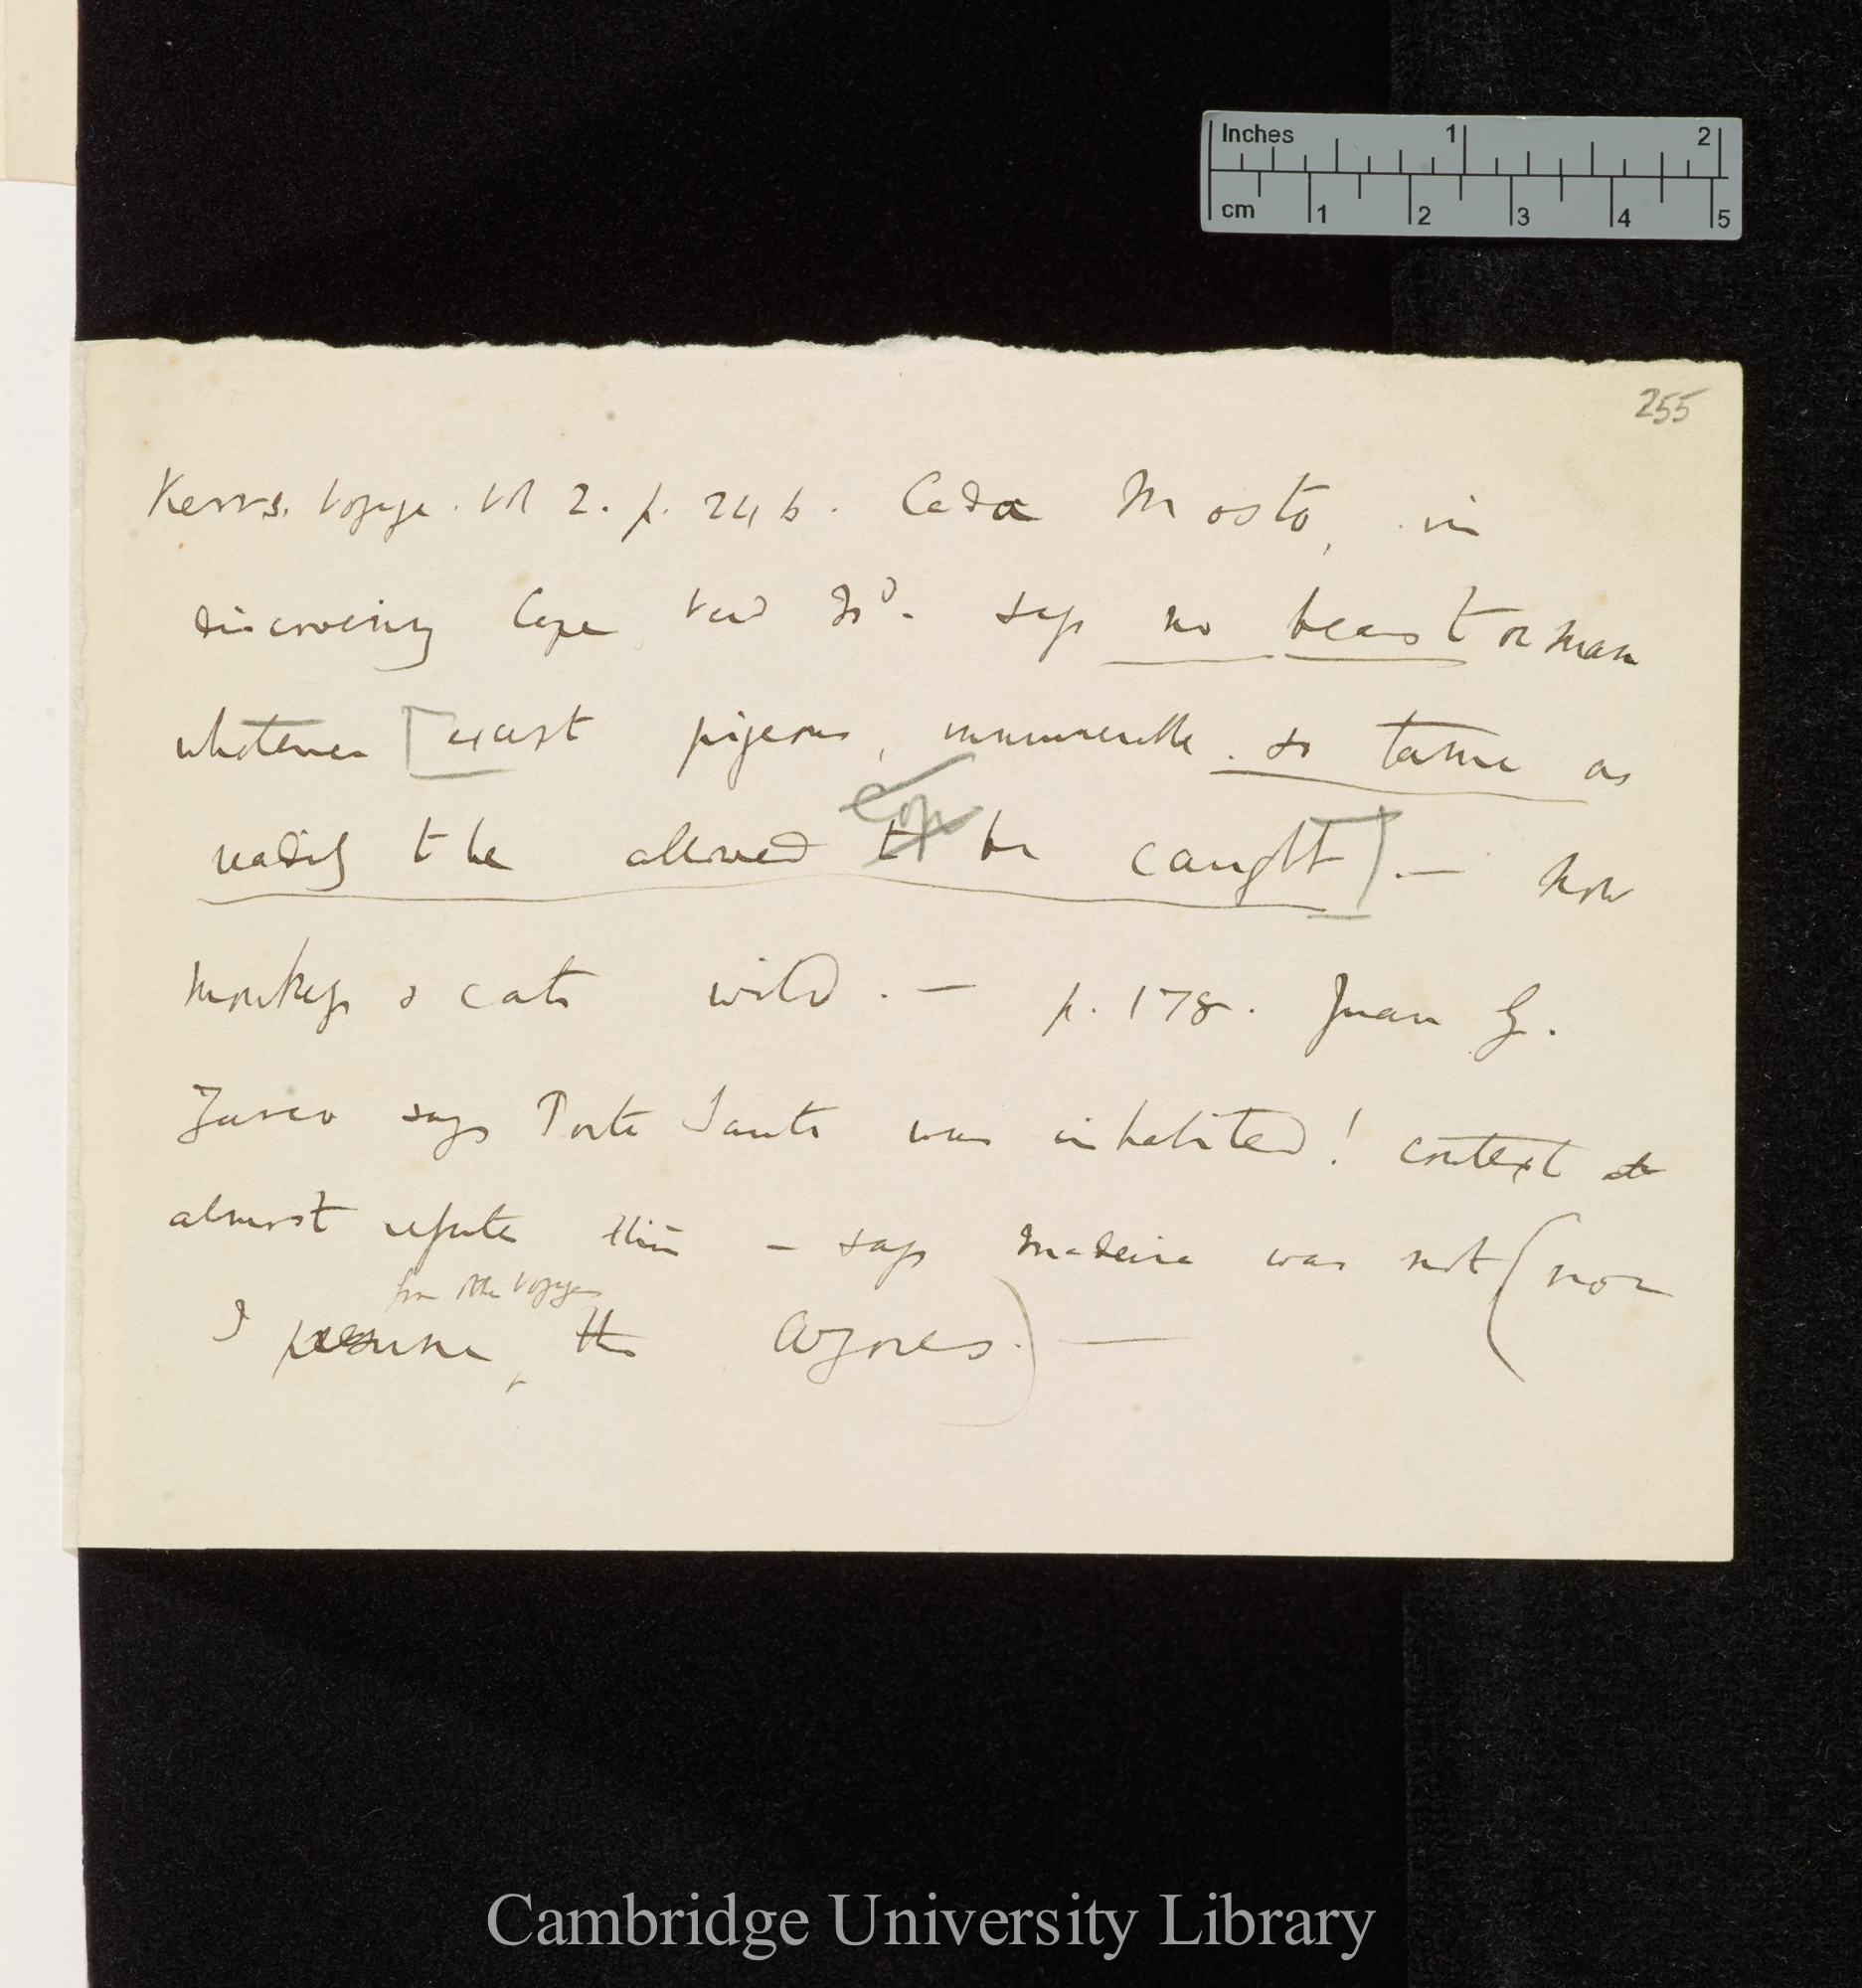 Inches 1 2
cm 1 2 3 4 5
255
Kerrs. Voyage. Vol 2. p. 246. Cada Mosto, in
discovering Cape Verd Isd. says no beast or man
whatever [except pigeons, innumerable. so tame as
Cop
readily to be allowed to be caught].— Now
monkeys & cats wild.— p. 178. Juan G.
Zarco says Porto Santo was inhabited! context
almost refutes this — says Madeira was not (nor
from other Voyages
I presume, the Azores.) —
Cambridge University Library